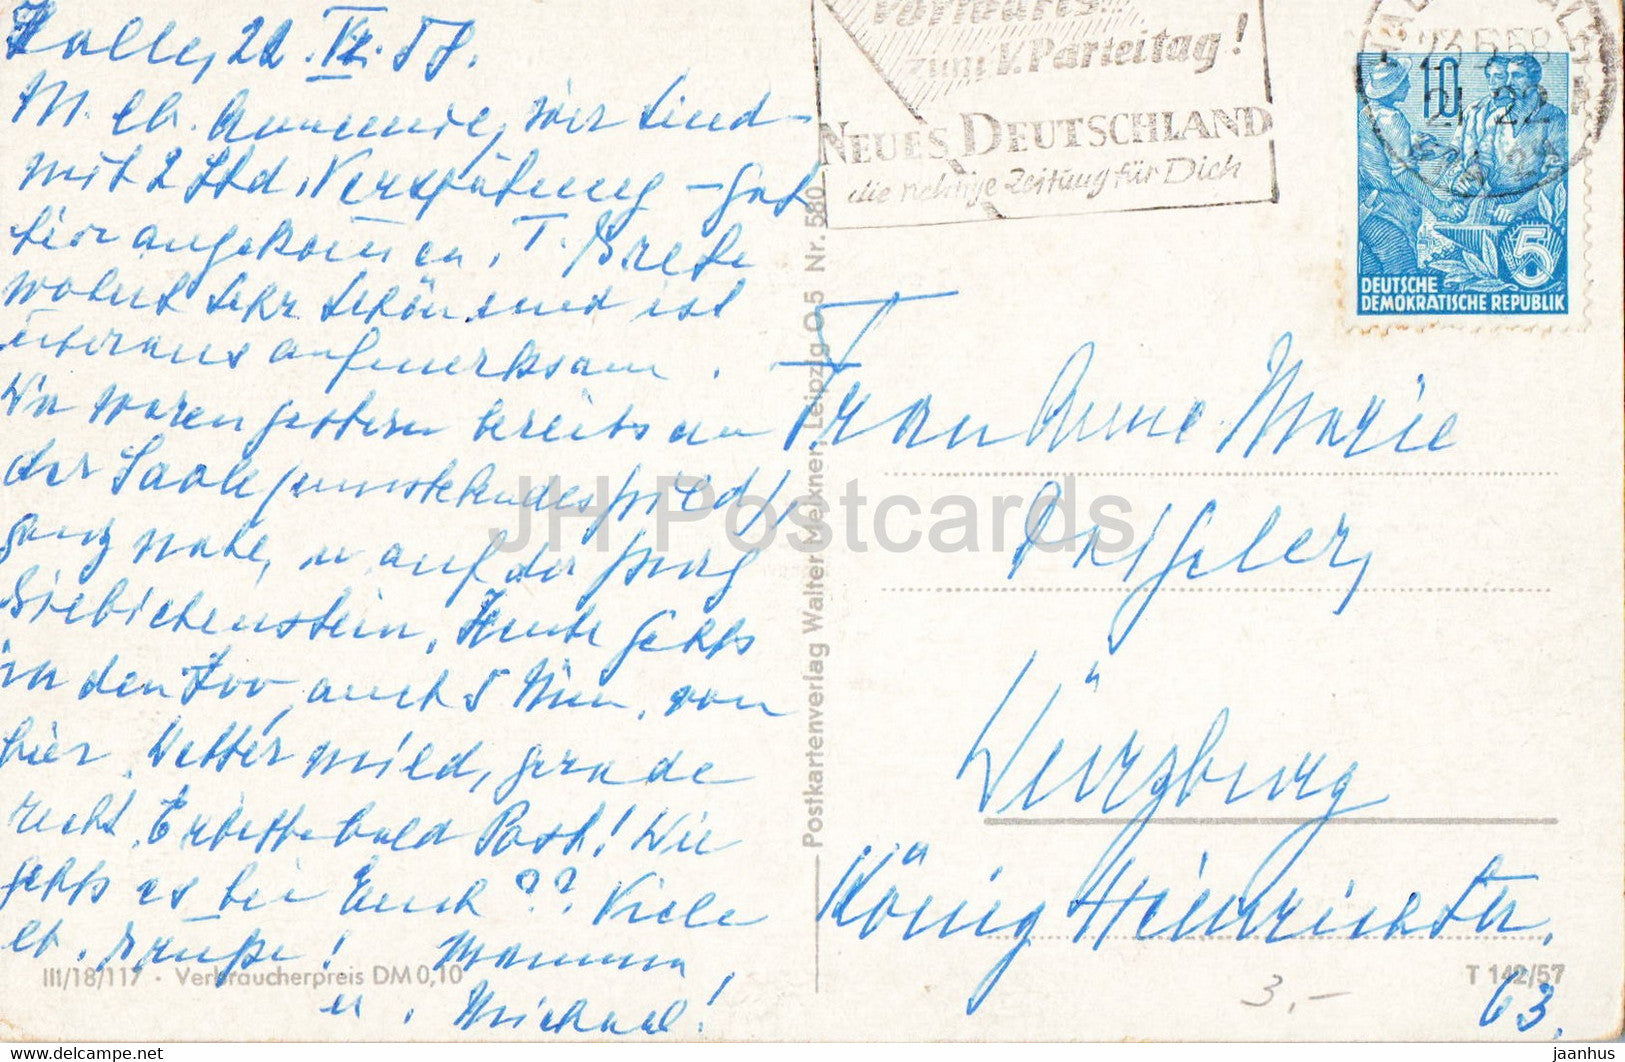 Halle, 22. VI. 58.
M. lb. Annemie, wir sind
mit 2 Std. Verspätung – gut
hier angekommen. T. Grete
wohnt sehr schön und ist
überaus aufmerksam.
Wir waren gestern bereits an
der Saale
ganz nahe, u auf der Burg
Giebichenstein. Heute gehts
in den Zoo, auch 5 Min. von
hier. Wetter mild, gerade
recht. Erbitte bald Post! Wie
gehts es bei Euch?? Viele
lb. Grüße! Mamma,
u. Michael!
III/18/117 · Verbraucherpreis DM 0,10
Vorwärts...
zum V. Parteitag!
NEUES DEUTSCHLAND
die richtige Zeitung für Dich
58
21-22
10
5
DEUTSCHE
DEMOKRATISCHE REPUBLIK
Postkartenverlag Walter Meixner, Leipzig O 5 Nr. 580
Frau Anne Marie
Würzburg
König Heinrichstr.
63.
T 142/57
3,-
JH Postcards
https://www.hippostcard.com
jaanhus